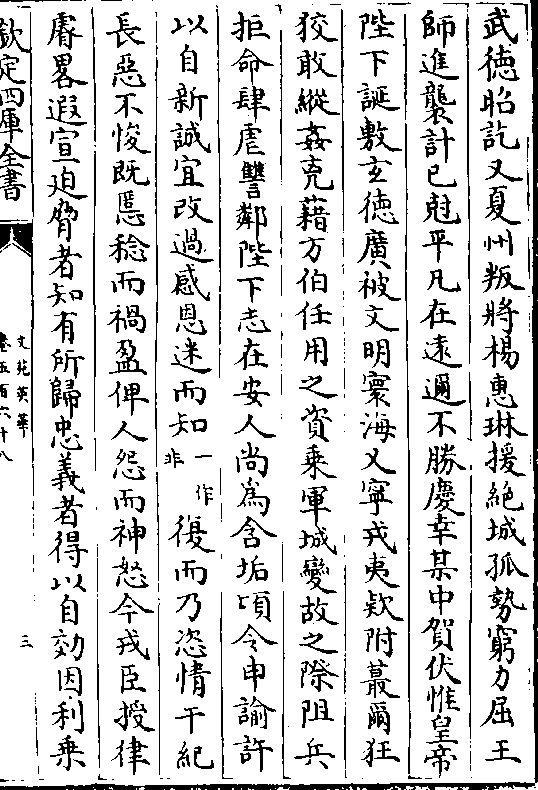 武徳昭訖又夏州叛將楊惠琳援絶城孤勢窮力屈王
師進襲計已尅平凡在遠邇不勝慶幸某中賀伏惟皇帝
陛下誕敷玄徳廣被文明寰海乂寧戎夷欵附蕞爾狂
狡敢縱姦兇藉方伯任用之資乗軍城變故之際阻兵
拒命肆虐讐鄰陛下志在安人尚為含垢頃令申諭許
以自新誠宜改過感恩迷而知一作非復而乃恣情干紀
長惡不悛既慝稔而禍盈俾人怨而神怒今戎臣授律
睿畧遐宣迫脅者知有所歸忠義者得以自効因利乗
欽定四庫全書
文苑英華
卷五百六十八
三